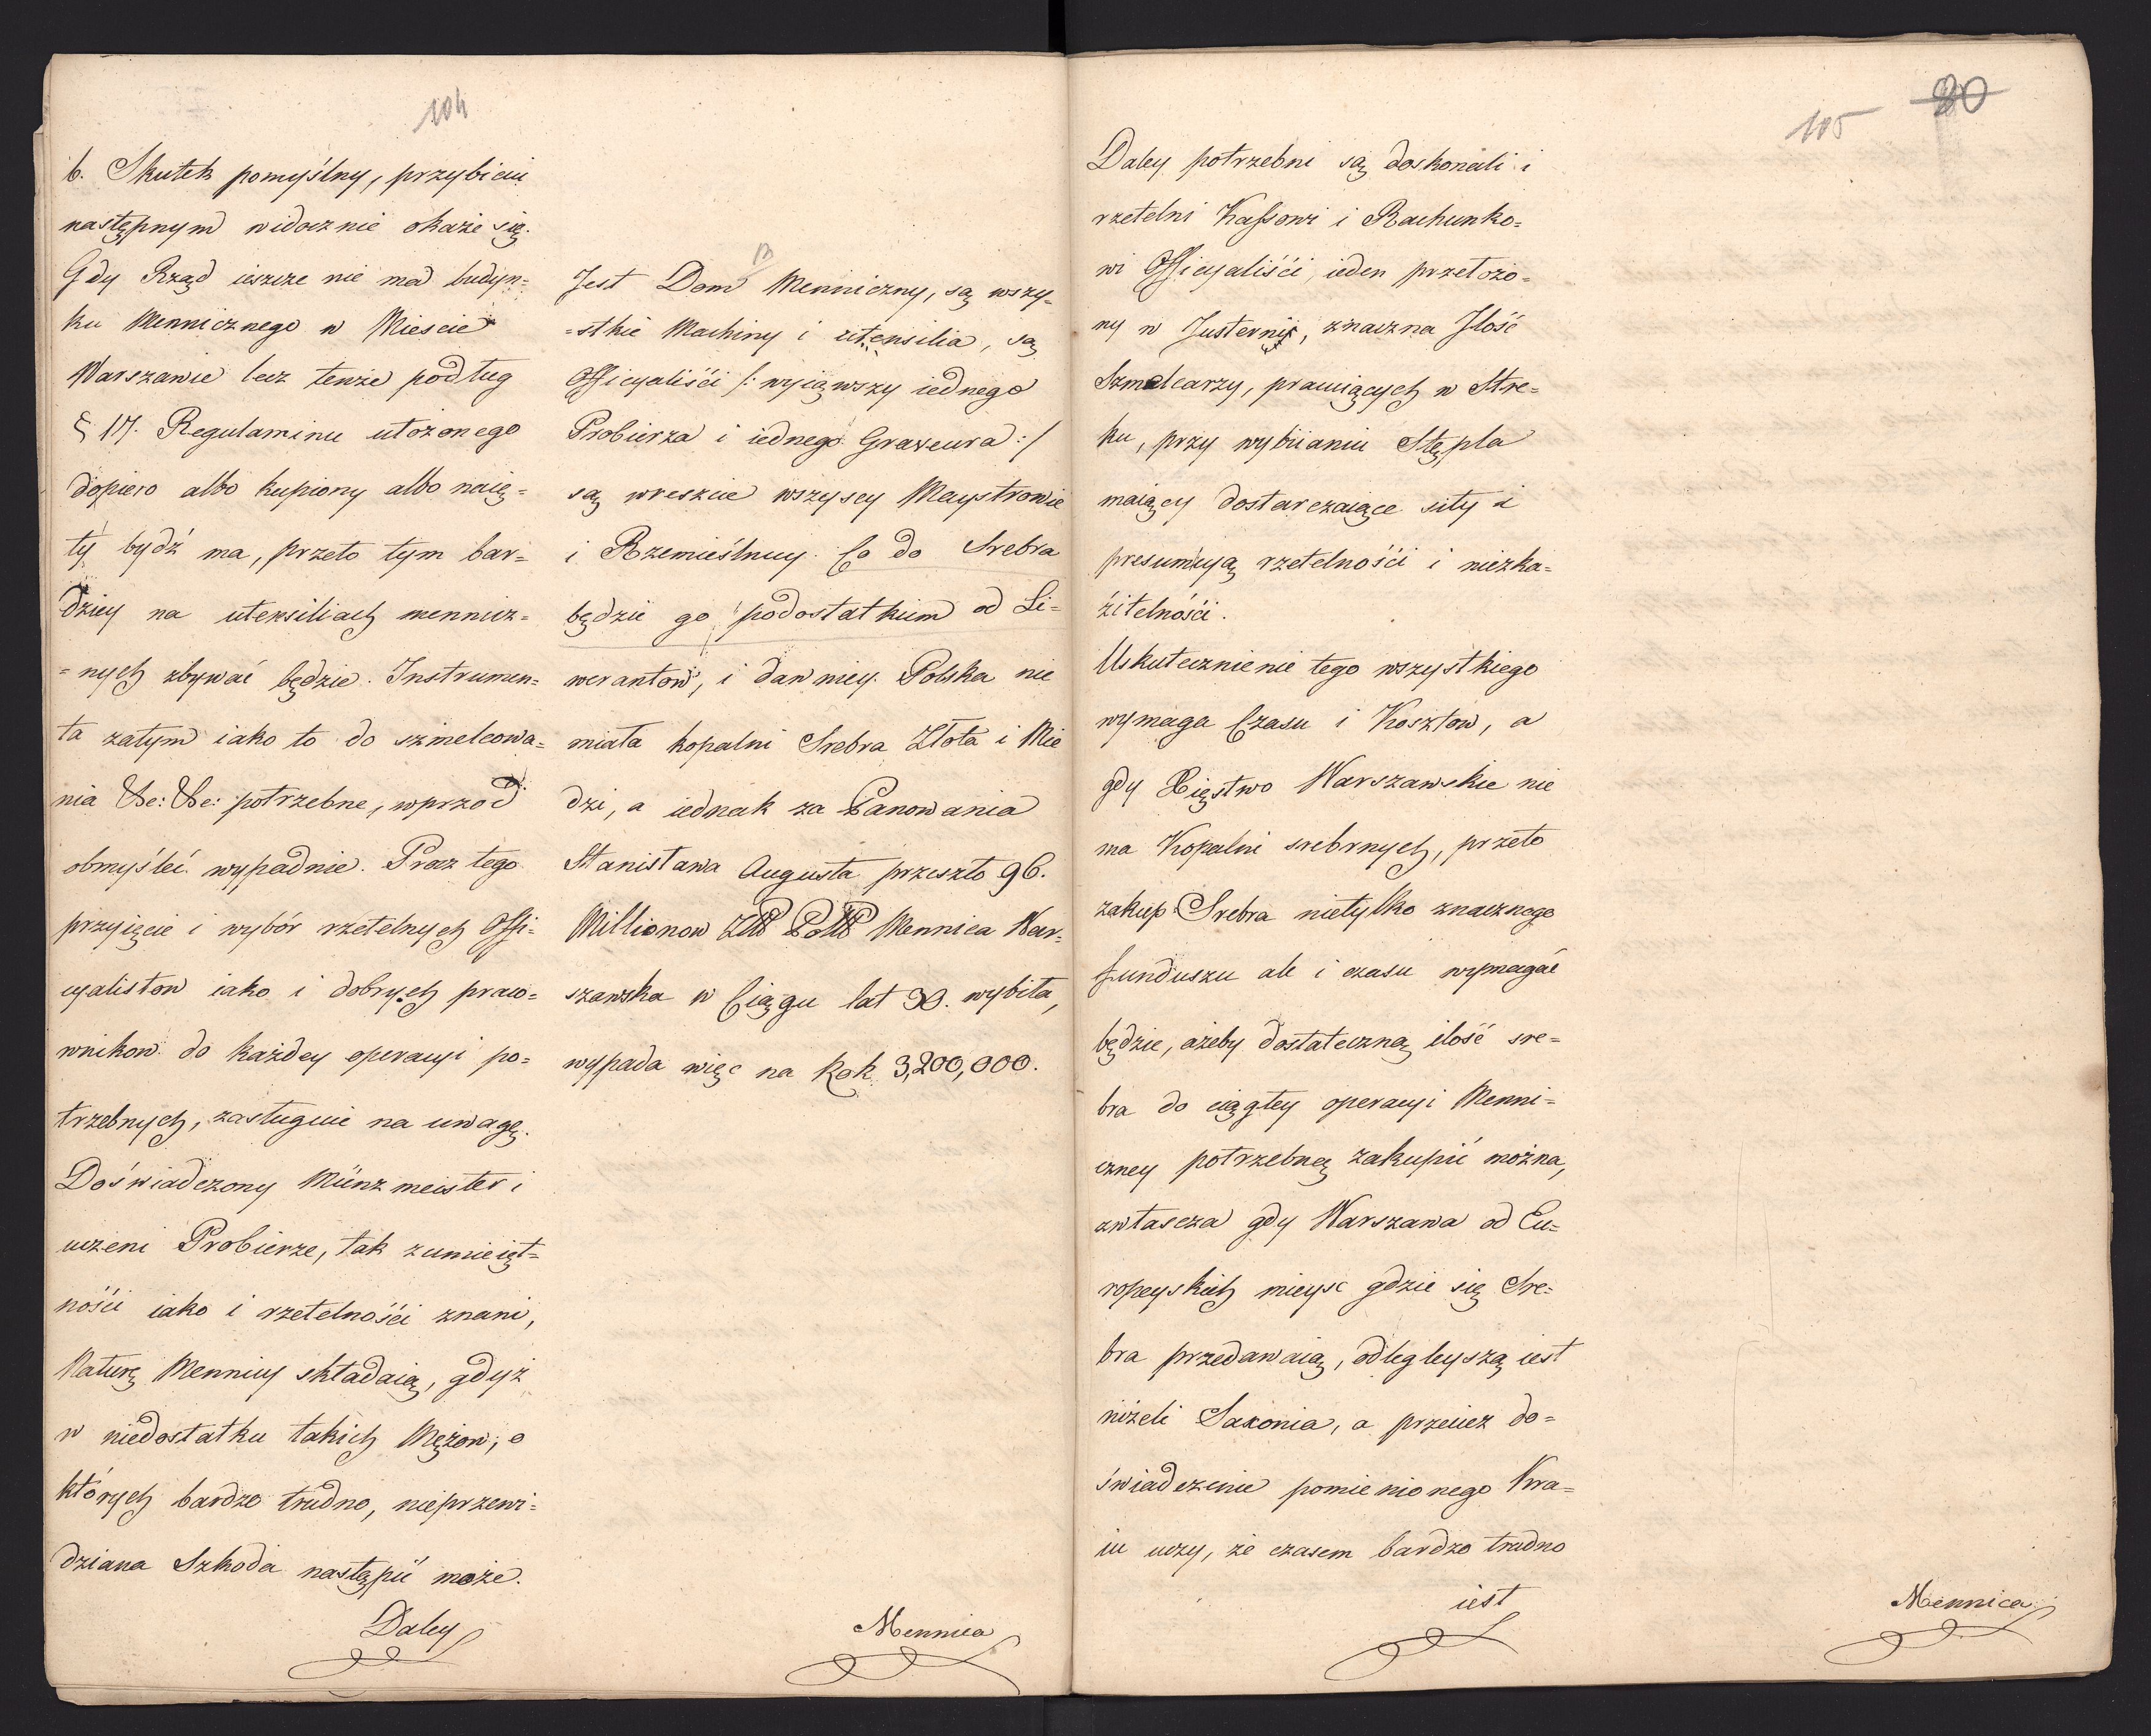 104
b. Skutek pomyślny, przybiciu
następnym widocznie okaże się.
Gdy Rząd ieszcze nie ma budyn=
ku Mennicznego w Mieście
Warszawie lecz tenże podług
§ 17. Regulaminu ułożonego
dopiero albo kupiony albo naię=
ty bydź ma, przeto tym bar=
dziey na utensiliach mennicz=
=nych zbywać będzie. Instrumen=
ta zatym iako to do szmelcowa=
nia &c: &c: potrzebne, wprzod
obmyśleć wypadnie. Procz tego
przyięcie i wybór rzetelnych Offi=
cyalistow iako i dobrych praco=
wnikow do każdey operacyi po=
trzebnych, zasługuie na uwagę.
Doświadczony Münzmeister i
uczeni Probierze, tak z umieięt=
ności iako i rzetelnośći znani,
Naturę Mennicy składaią, gdyż
w niedostatku takich Mężow, o
których bardzo trudno, nieprzewi=
dziana Szkoda nastąpić może.
Daley
B
Jest Dom Menniczny, są wszy=
=stkie Machiny i utensilia, są
Officyaliśći /: wyiąwszy iednego
Probierza i iednego Graveura :/
są wreszcie wszyscy Maystrowie
i Rzemieślnicy. Co do Srebra
będzie go podostatkiem od Li=
werantow, i dawniey Polska nie
miała kopalni Srebra Złota i Mie
dzi, a iednak za Panowania
Stanisława Augusta przeszło 96.
Millionow Złł Polł Mennica War=
szawska w Ciągu lat 30. wybiła,
wypada więc na Rok 3,200,000.
Mennica
105 20
Daley potrzebni są doskonali i
rzetelni Kassowi i Rachunko=
wi Officyaliśći, ieden przełożo=
ny w Justernię, znaczna Ilość
Szmelcarzy, pracuiących w Stre=
ku, przy wybiianiu Stępla
maiący dostarczaiące siły i
presumcyą rzetelnośći i niezka=
źitelnośći.
Uskutecznienie tego wszystkiego
wymaga Czasu i Kosztow, a
gdy Xięstwo Warszawskie nie
ma Kopalni srebrnych, przeto
zakup Srebra nietylko znacznego
funduszu ale i czasu wymagać
będzie, ażeby dostateczną ilość sre=
bra do ciągłey operacyi Menni=
czney potrzebną zakupić można,
zwłascza gdy Warszawa od Eu=
ropeyskich mieysc gdzie się Sre=
bra przedawaią, odlegleyszą iest
niżeli Saxonia, a przecież do=
świadczenie pomienionego Kra=
iu uczy, że czasem bardzo trudno
iest
Mennica